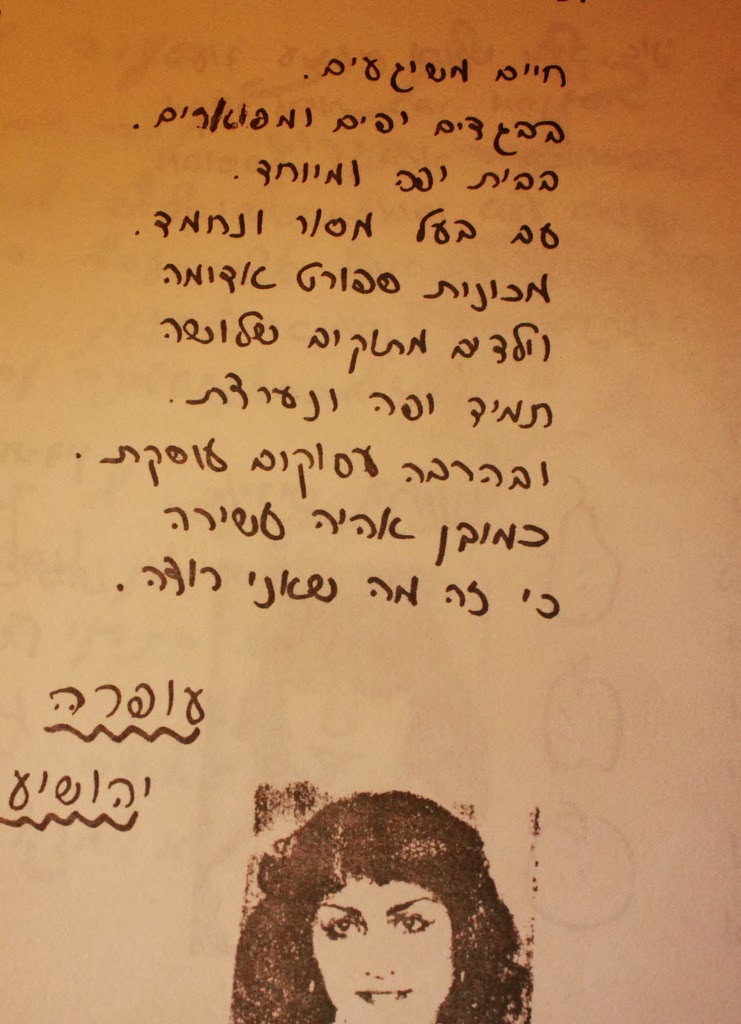 חיים משיגעים.
בבגדים יפים ומפוארים.
בבית יפה ומיוחד.
עם בעל מסור ונחמד.
מכונית ספורט אדומה
וילדים מתוקים שלושה
תמיד יפה ונערצת.
ובהרבה עסוקים עוסקת.
כמובן אהיה עשירה
כי זה מה שאני רוצה.
עופרה
יהושיע